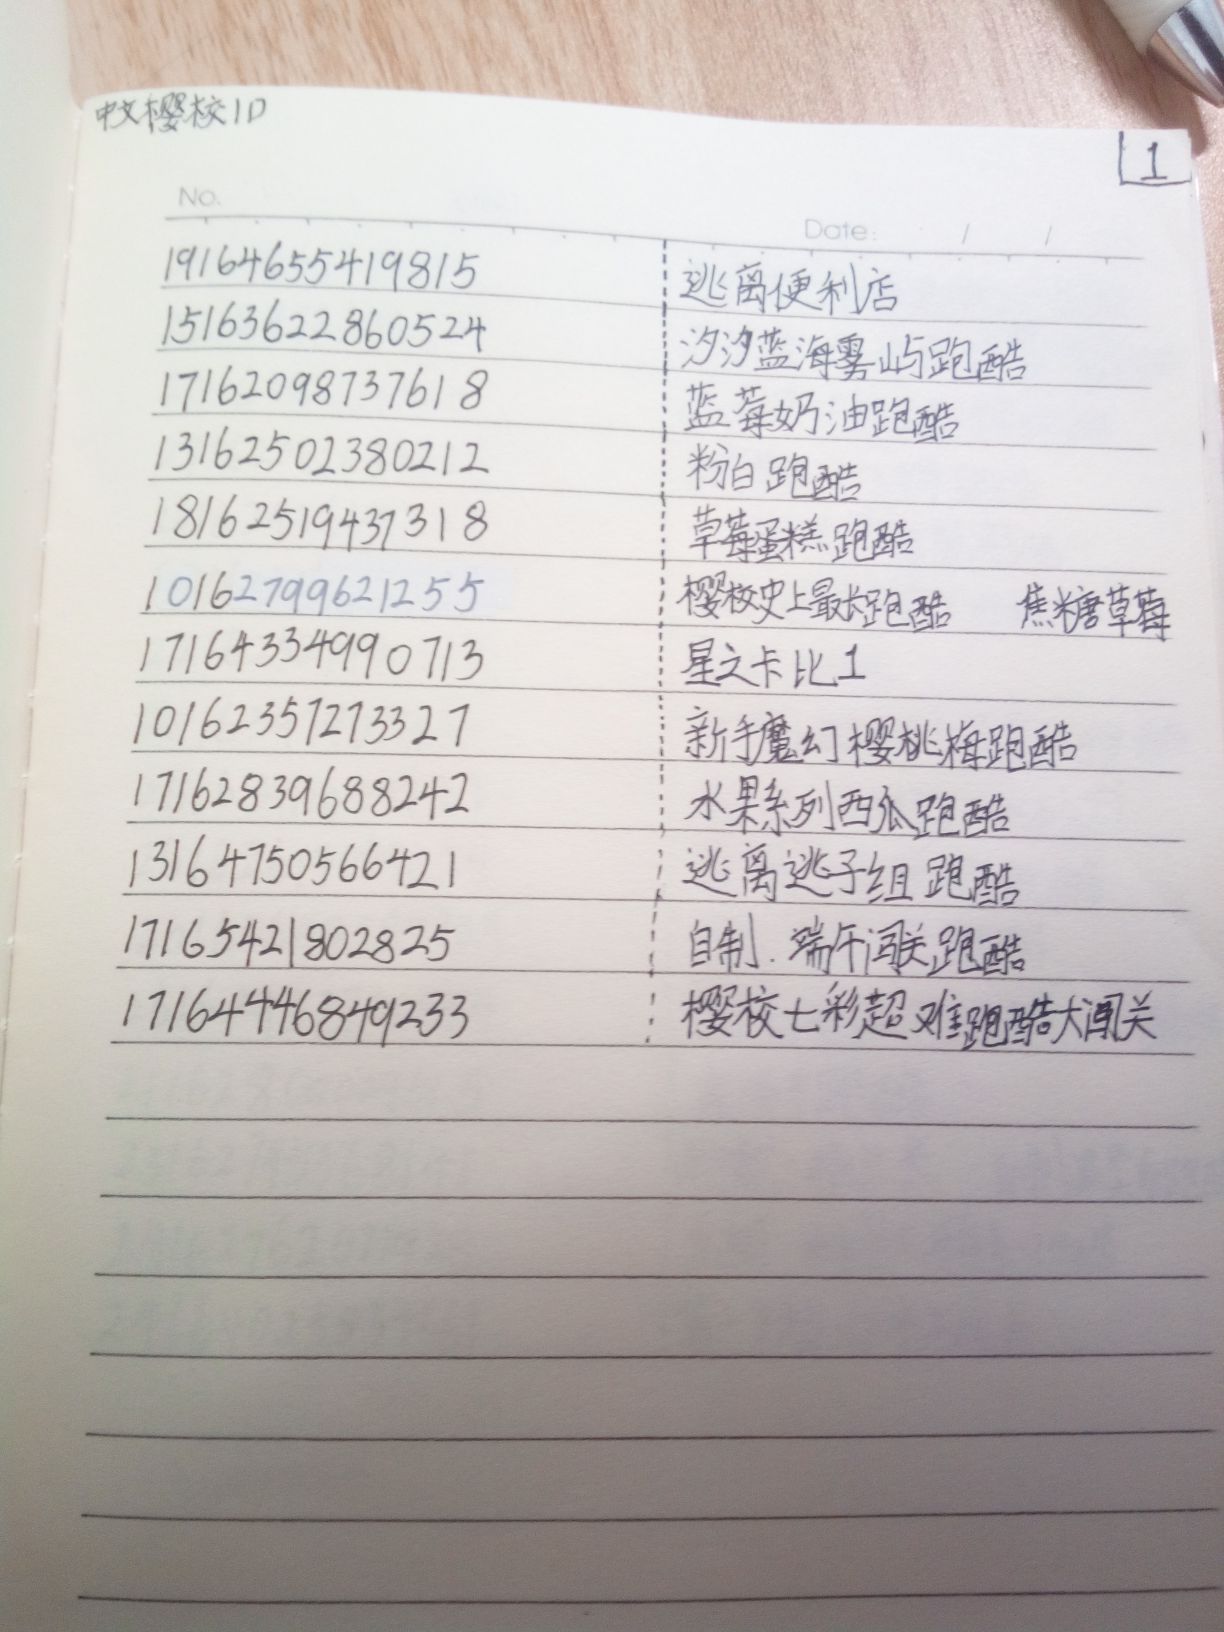 中文樱校ID
1
No.
Date: / /
19164655419815 逃离便利店
15163622860524 汐汐蓝海雾屿跑酷
17162098737618 蓝莓奶油跑酷
13162502380212 粉白跑酷
18162519437318 草莓蛋糕跑酷
10162799621255 樱校史上最长跑酷 焦糖草莓
17164334990713 星之卡比1
10162357273327 新手魔幻樱桃梅跑酷
17162839688242 水果系列西瓜跑酷
13164750566421 逃离逃子组跑酷
17165421802825 自制.端午闯关跑酷
17164446849233 樱校七彩超难跑酷大闯关